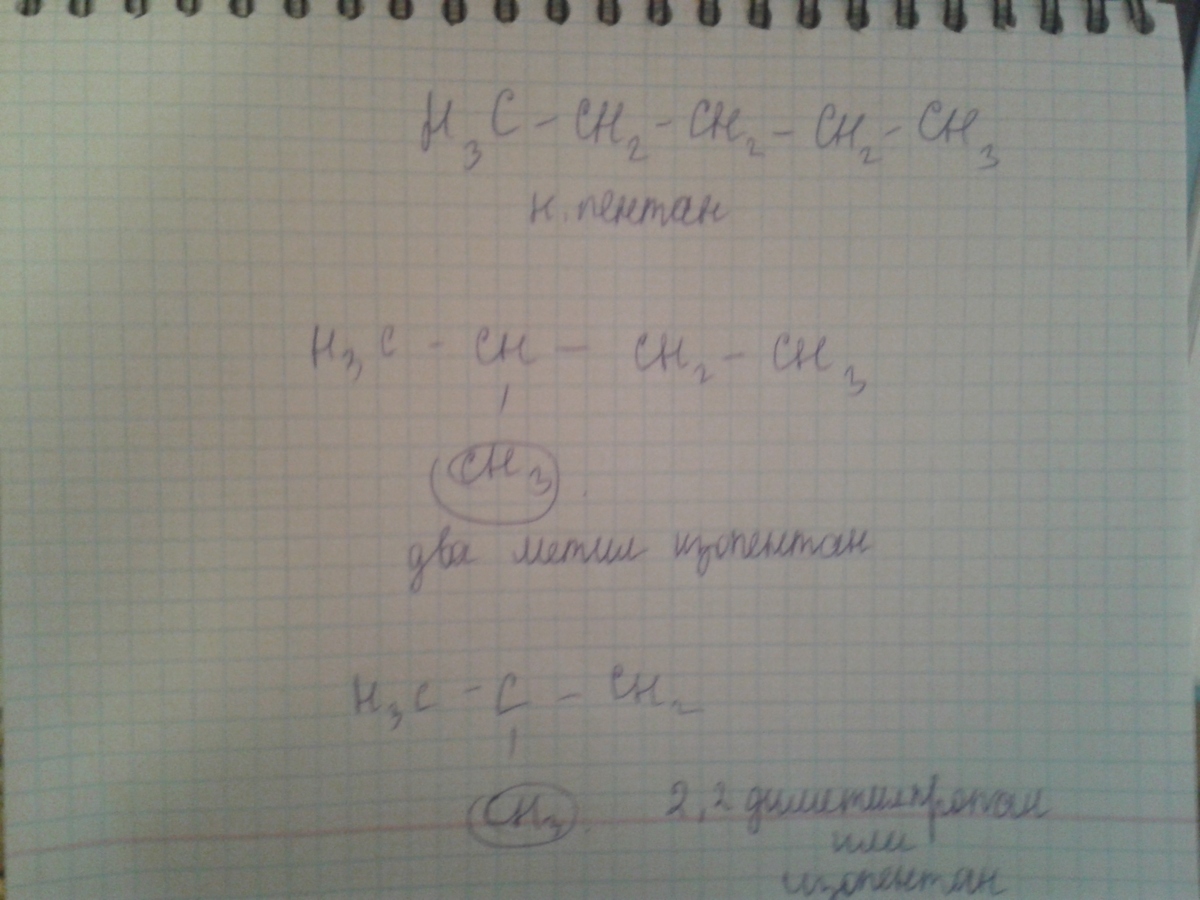 H₃C - CH₂ - CH₂ - CH₂ - CH₃
н. пентан
H₃C - CH - CH₂ - CH₃
CH₃
два метил изопентан
H₃C - C - CH₂
CH₃
2,2 диметилпропан
или
изопентан